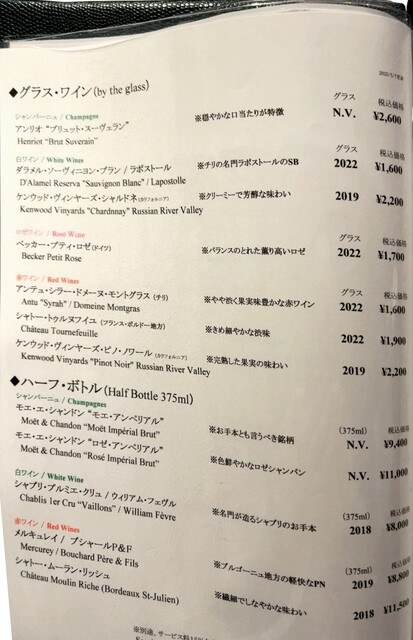 ◆グラス・ワイン(by the glass)
シャンパーニュ / Champagne グラス 税込価格
アンリオ "ブリュット・スーヴェラン" ※穏やかな口当たりが特徴 N.V. ¥2,600
Henriot "Brut Suverain"
白ワイン / White Wines グラス 税込価格
ダラメル・ソーヴィニヨン・ブラン / ラポストール ※チリの名門ラポストールのSB 2022 ¥1,600
D'Alamel Reserva "Sauvignon Blanc" / Lapostolle
ケンウッド・ヴィンヤーズ・シャルドネ(カリフォルニア) ※クリーミーで芳醇な味わい 2019 ¥2,200
Kenwood Vinyards "Chardnnay" Russian River Valley
ロゼワイン / Rose Wine グラス 税込価格
ベッカー・プティ・ロゼ(ドイツ) ※バランスのとれた薫り高いロゼ 2022 ¥1,700
Becker Petit Rose
赤ワイン / Red Wines グラス 税込価格
アンテュ・シラー・ドメーヌ・モントグラス(チリ) ※やや渋く果実味豊かな赤ワイン 2022 ¥1,600
Antu "Syrah" / Domeine Montgras
シャトー・トゥルヌフイユ(フランス・ボルドー地方) ※きめ細やかな渋味 2022 ¥1,900
Château Tournefeuille
ケンウッド・ヴィンヤーズ・ピノ・ノワール(カリフォルニア) ※完熟した果実の味わい 2019 ¥2,200
Kenwood Vinyards "Pinot Noir" Russian River Valley
◆ハーフ・ボトル(Half Bottle 375ml)
シャンパーニュ / Champagnes (375ml) 税込価格
モエ・エ・シャンドン "モエ・アンペリアル" ※お手本とも言うべき銘柄 N.V. ¥9,400
Moët & Chandon "Moët Impérial Brut"
モエ・エ・シャンドン "ロゼ・アンペリアル" ※色鮮やかなロゼシャンパン N.V. ¥11,000
Moët & Chandon "Rosé Impérial Brut"
白ワイン / White Wine (375ml) 税込価格
シャブリ・プルミエ・クリュ / ウィリアム・フェヴル ※名門が造るシャブリのお手本 2018 ¥8,000
Chablis 1er Cru "Vaillons" / William Fèvre
赤ワイン / Red Wines (375ml) 税込価格
メルキュレイ / ブシャールP&F ※ブルゴーニュ地方の軽快なPN 2019 ¥8,800
Mercurey / Bouchard Père & Fils
シャトー・ムーラン・リッシュ ※繊細でしなやかな味わい 2018 ¥11,500
Château Moulin Riche (Bordeaux St-Julien)
※別途、サービス料